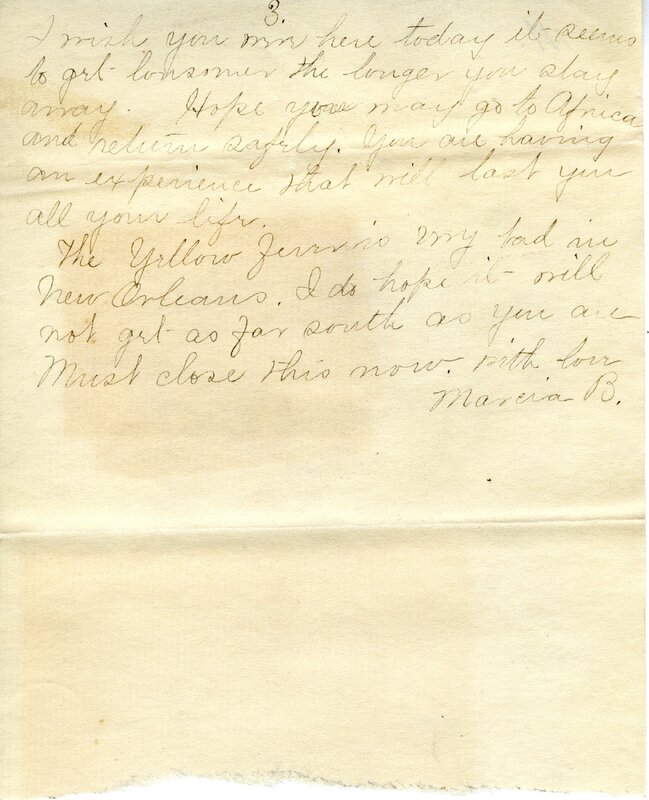 3.
I wish you were here today it seems
to get lonsomer the longer you stay
away. Hope you may go to Africa
and return safely. You are having
an experience that will last you
all your life.
The Yellow Fever is very bad in
New Orleans. I do hope it will
not get as far south as you are
Must close this now. With love
Marcia B.